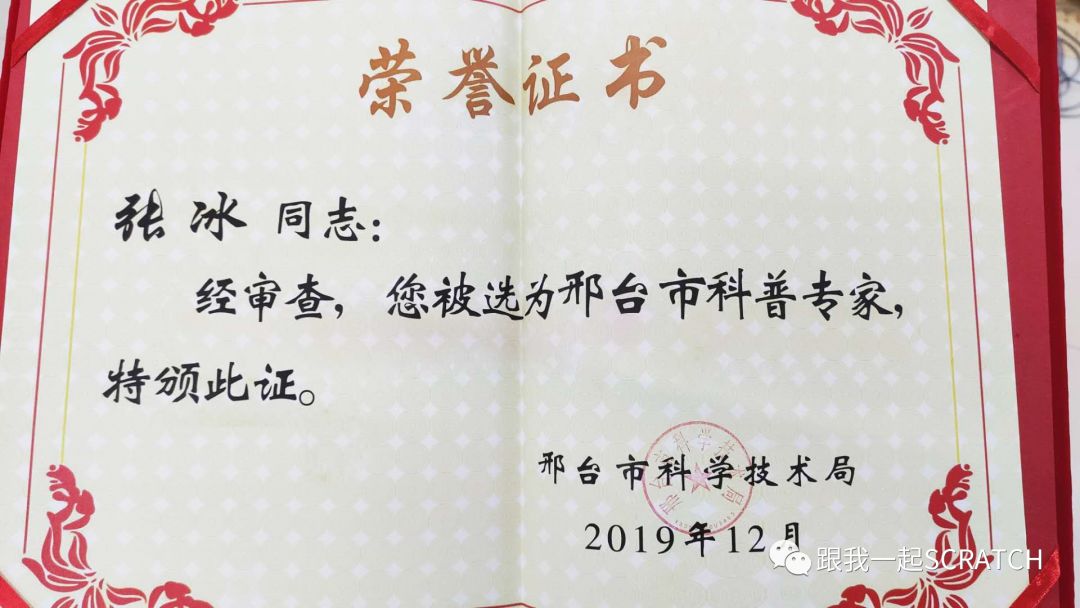 荣誉证书
张冰 同志：
经审查，您被选为邢台市科普专家，
特颁此证。
邢台市科学技术局
2019年12月
跟我一起SCRATCH